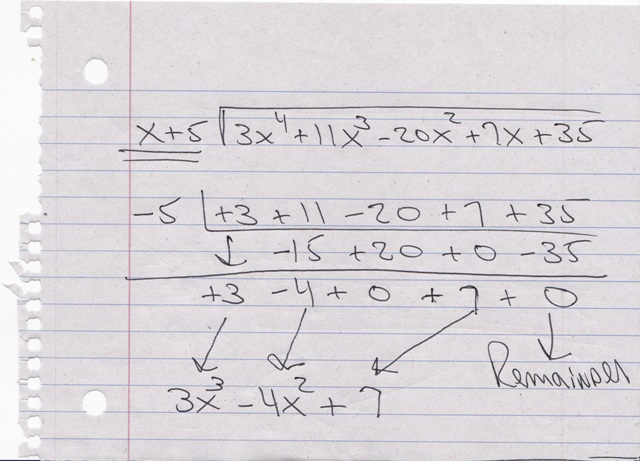 x+5 3x⁴+11x³-20x²+7x+35
-5 +3 +11 -20 +7 +35
↓ -15 +20 +0 -35
+3 -4 +0 +7 +0
3x³-4x²+7
Remainder